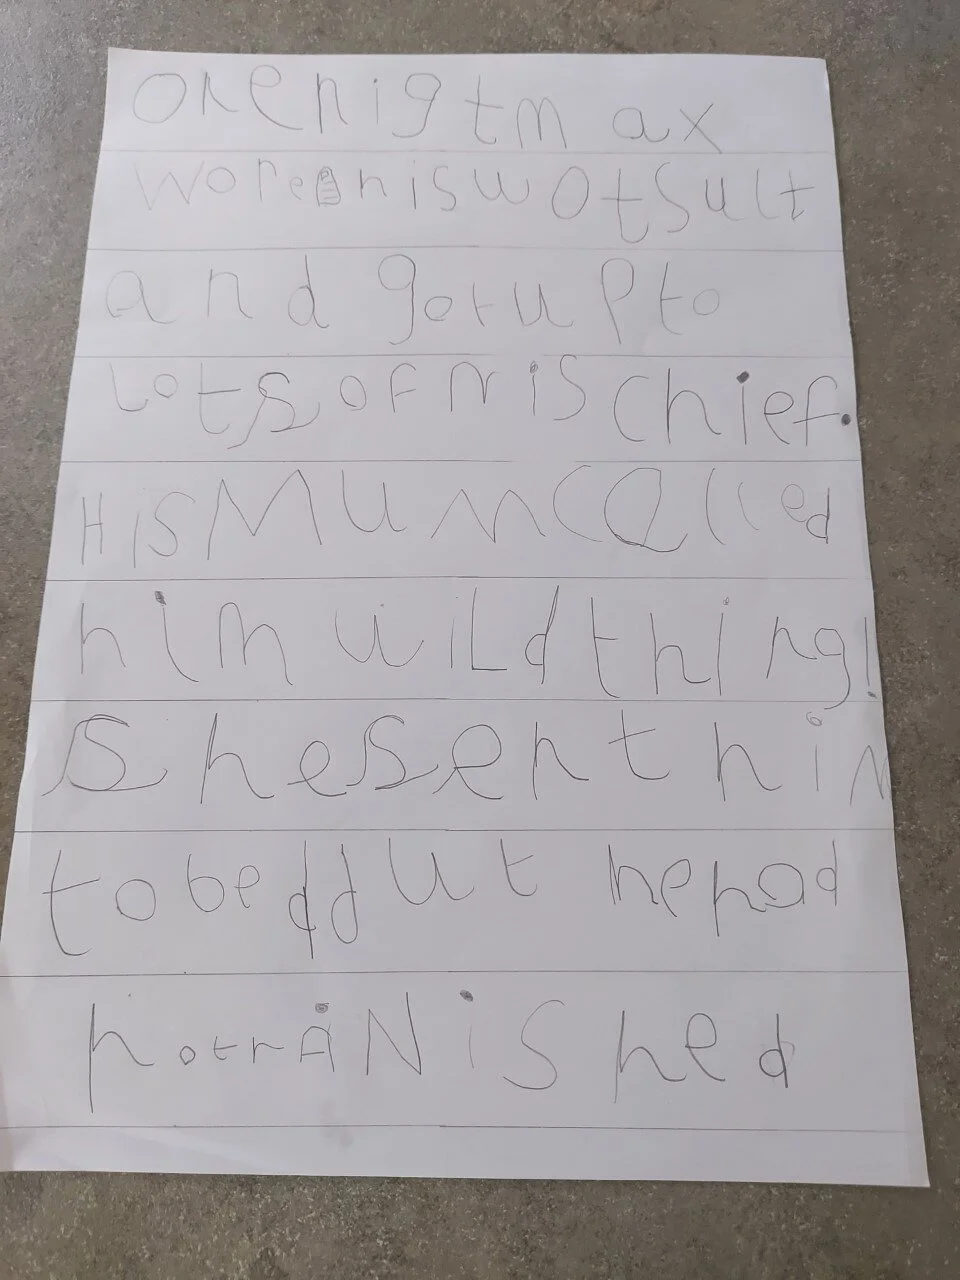 one nigt max
wore his wotsult
and gotup to
lots of mischief.
His Mum called
him wild thing!
She sent him
to bed dut he had
not fanished